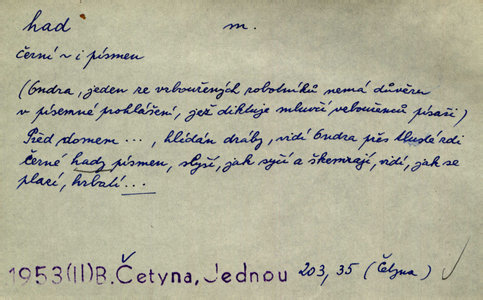 had m.
černí ~ i písmen
(Ondra, jeden ze vzbouřených robotníků nemá důvěru
v písemné prohlášení, jež diktuje mluvčí vzbouřenců písaři)
Před domem ..., hlídán dráby, vidí Ondra přes tlusté zdi
černé hady písmen, slyší, jak syčí a škemrají, vidí, jak se
plazí, hrbatí...
1953(II)B. Četyna, Jednou 203, 35 (Četyna)